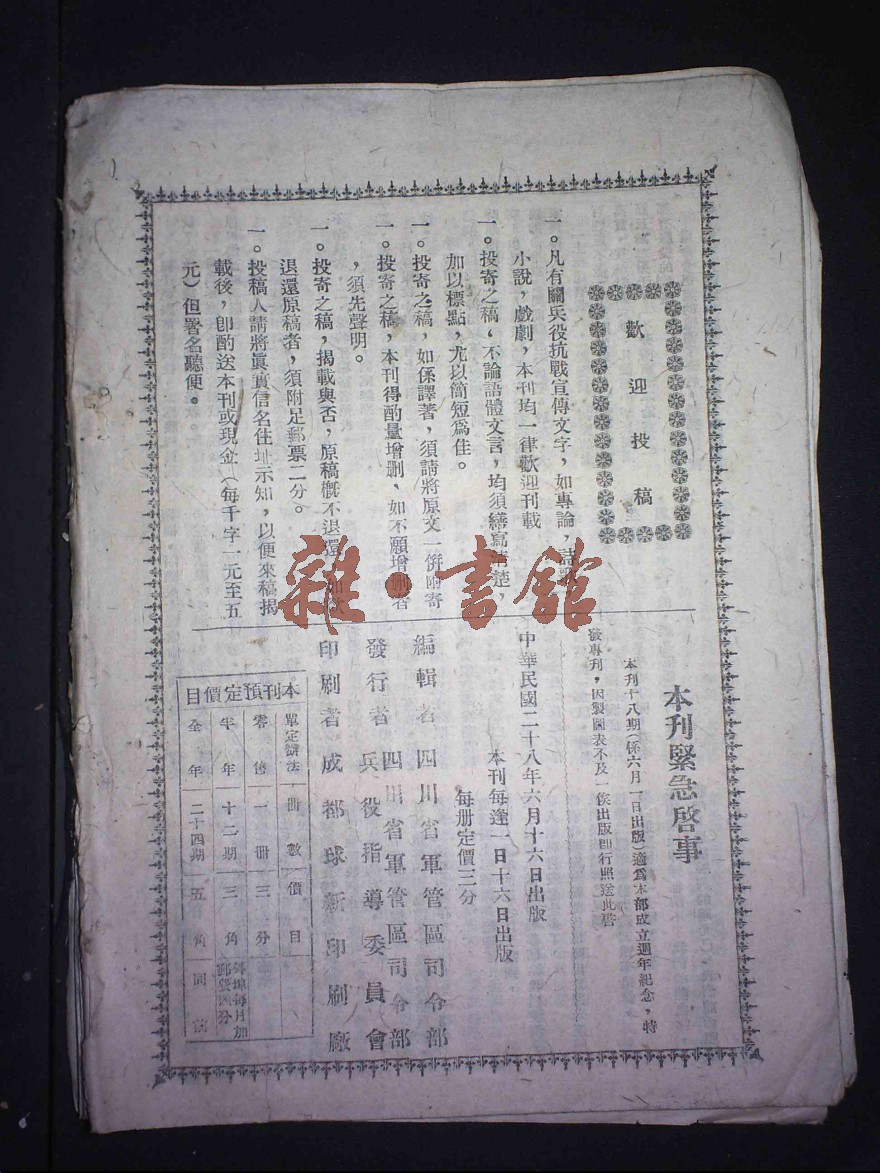 歡迎投稿
一。凡有關兵役抗戰宣傳文字，如專論，詩歌
小說，戲劇，本刊均一律歡迎刊載
一。投寄之稿，不論語體文言，均須繕寫清楚，
加以標點，尤以簡短爲佳。
一。投寄之稿，如係譯著，須請將原文一併附寄
一。投寄之稿，本刊得酌量增删、如不願增删者
，須先聲明。
一。投寄之稿，揭載與否，原稿槪不退還，如欲
退還原稿者，須附足郵票二分。
一。投稿人請將眞實信名住址示知，以便來稿揭
載後，卽酌送本刊或現金（每千字一元至五
元）但署名聽便。
本刊緊急啓事
本刊十八期（係六月一日出版）適爲本部成立週年紀念，特
發專刊，因製圖表不及一俟出版卽行照送此啓
中華民國二十八年六月十六日出版
本刊每逢一日十六日出版
每册定價三分
編輯者 四川省軍管區司令部
四川省軍管區司令部
發行者 兵役指導委員會
印刷者 成都球新印刷廠
本刊預定價目
單定辦法 册數 價目
零售 一册 三分
半年 十二期 三角 外埠每月加郵費四分
全年 二十四期 五角 同前
雜·書館